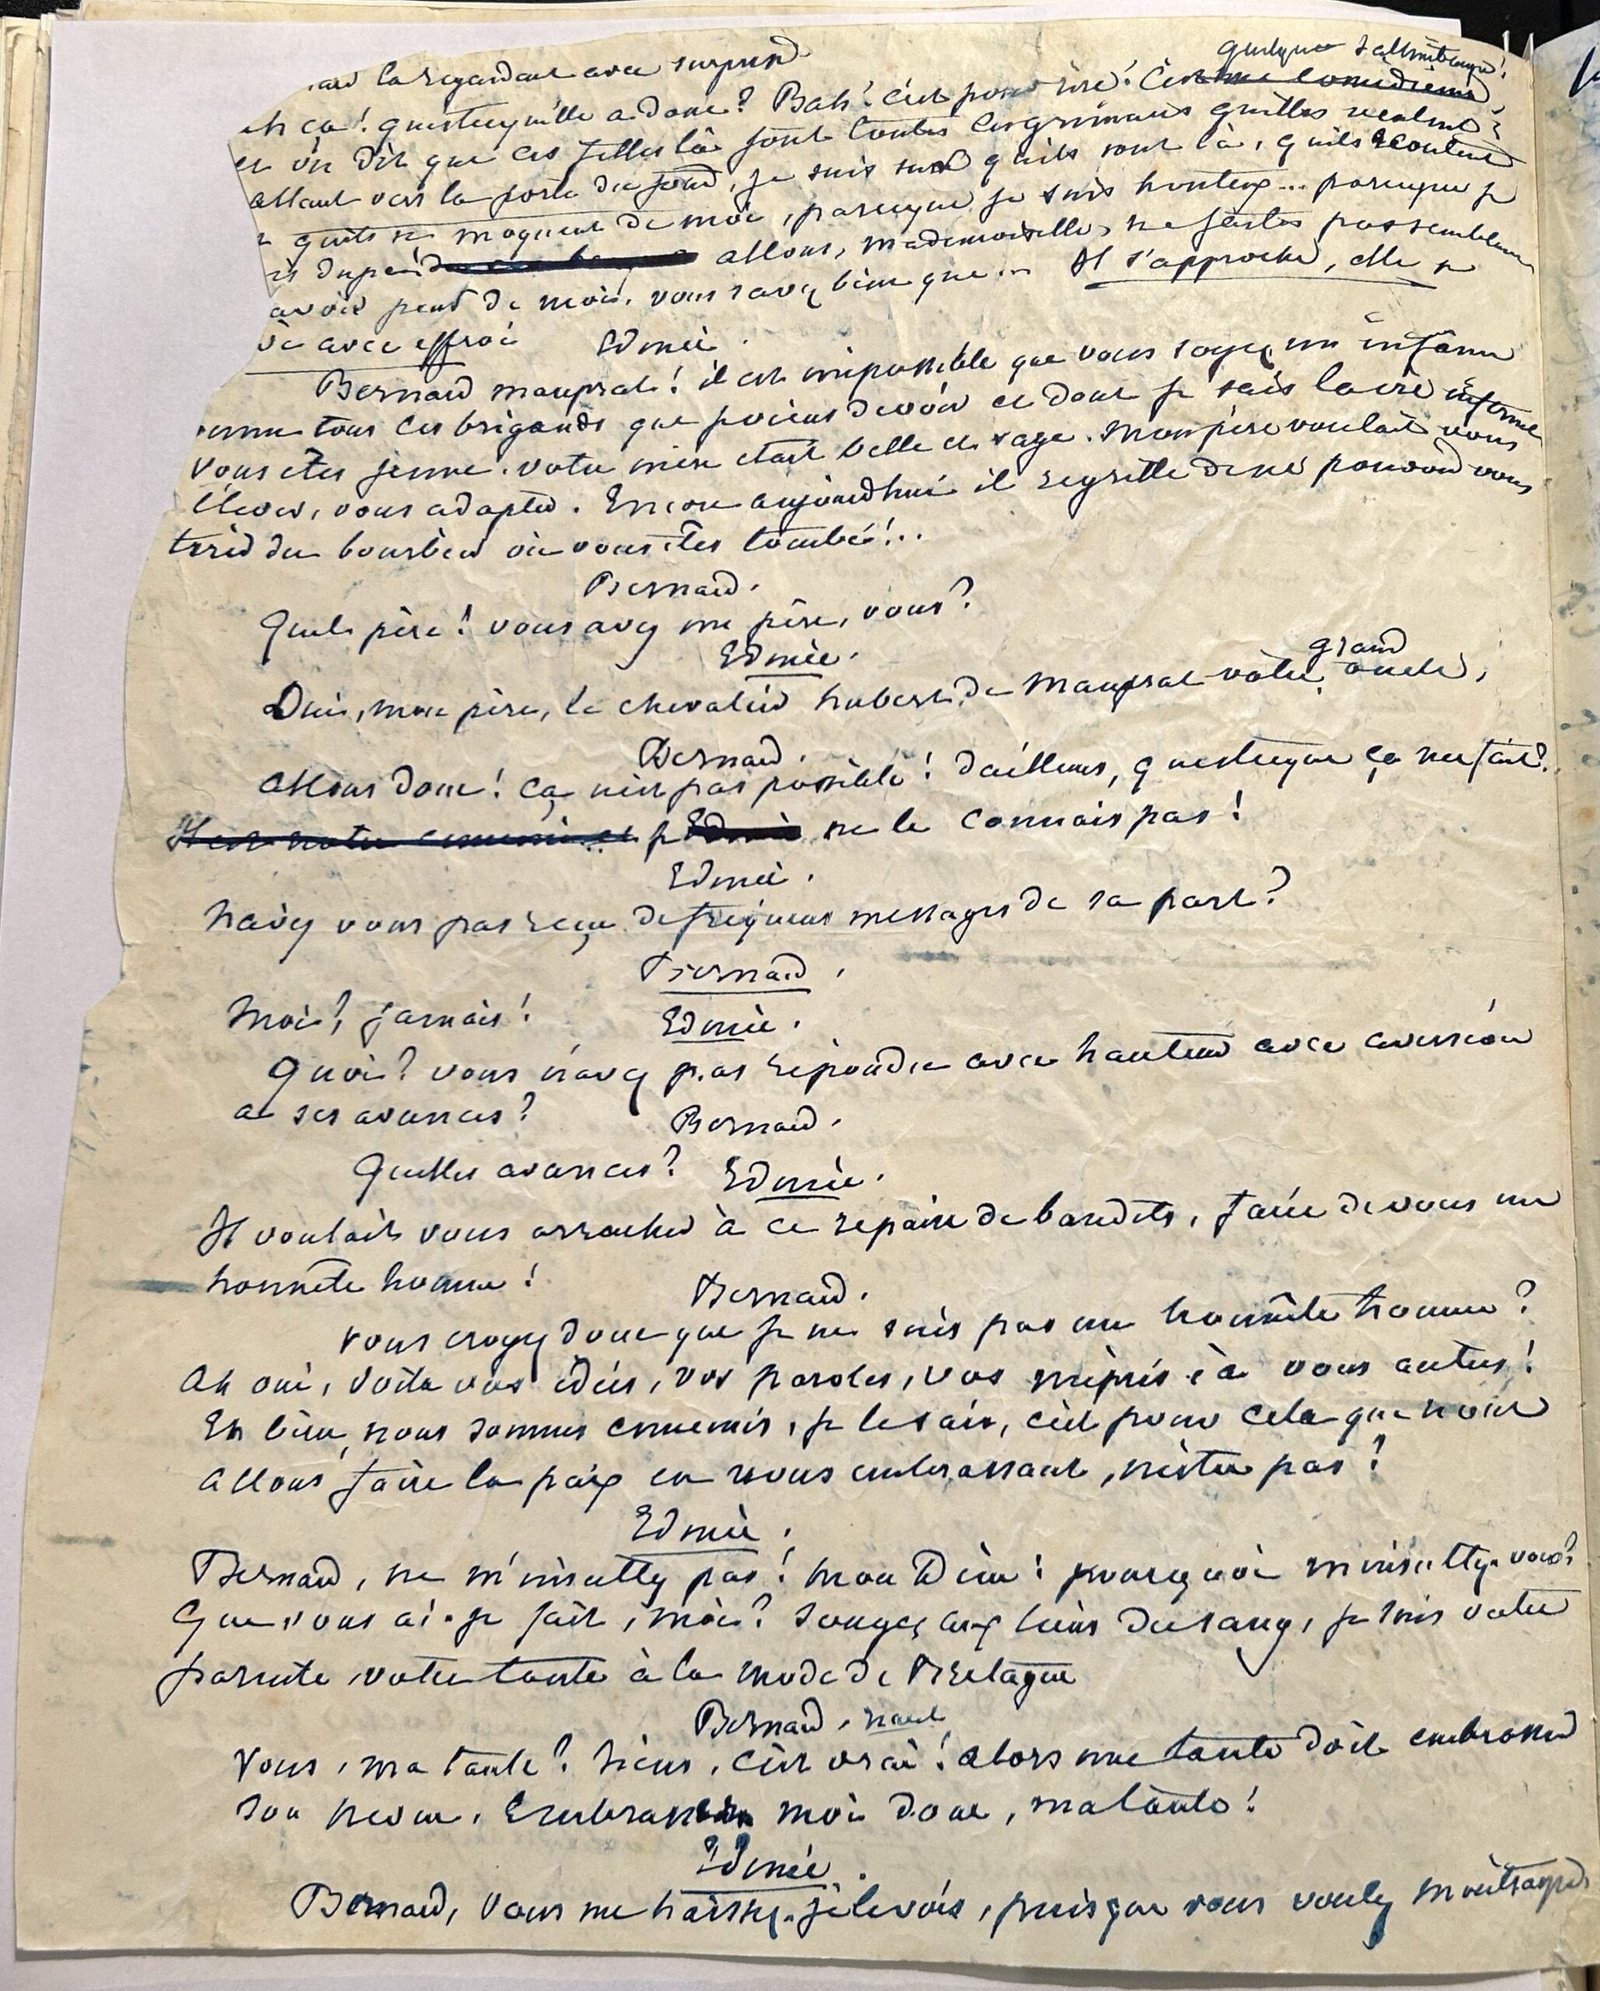 la regardant avec surprise
ah ça! qu'estcequ'elle a donc? Bah! c'est pour rire! c'est une comedienne, quelque saltimbanque!
et on dit que ces filles là font toutes les grimaces qu'elles veulent!
allant vers la porte du fond, je suis sur qu'ils sont là, qu'ils écoutent
qu'ils se moquent de moi, parceque je suis honteux... parceque je
allons, mademoiselle, ne faites pas semblant
avoir peur de moi, vous savez bien que... Il s'approche, elle se
avec effroi
Edmée.
Bernard Mauprat! il est impossible que vous soyez un infâme
comme tous les brigands que je viens de voir et dont je sais la vie infame
Vous êtes jeune. votre mère était belle et sage. Mon père voulait vous
élever, vous adopter. Encore aujourdhui il regrette de ne pouvoir vous
tirer du bourbier où vous êtes tombé!..
Bernard.
Quel père! vous avez un père, vous?
Edmée.
Oui, mon père, le chevalier hubert de Mauprat votre grand oncle,
Bernard.
allons donc! ça n'est pas possible! d'ailleurs, qu'estceque ça me fait?
Il est notre ennemi et je ne le connais pas!
Edmée.
N'avez vous pas reçu de fréquens messages de sa part?
Bernard.
Moi? jamais!
Edmée.
Quoi? vous n'avez pas répondu avec hauteur avec aversion
a ses avances?
Bernard.
Quelles avances?
Edmée.
Il voulait vous arracher à ce repaire de bandits, faire de vous un
honnête homme!
Bernard.
Vous croyez donc que je ne suis pas un honnête homme?
Ah oui, voila vos idées, vos paroles, vos mépris à vous autres!
Eh bien, nous sommes ennemis, je le sais, c'est pour cela que nous
allons faire la paix en nous embrassant, n'estce pas?
Edmée.
Bernard, ne m'insultez pas! Mon Dieu! pourquoi m'insultez-vous?
Que vous ai-je fait, moi? Songez aux liens du sang, je suis votre
parente, votre tante à la mode de Bretagne
Bernard, riant
Vous, ma tante? tiens, c'est vrai! alors une tante doit embrasser
son neveu, Embrassez moi donc, ma tante!
Edmée.
Bernard, Vous me haïssez, je le vois, puisque vous voulez m'outrager